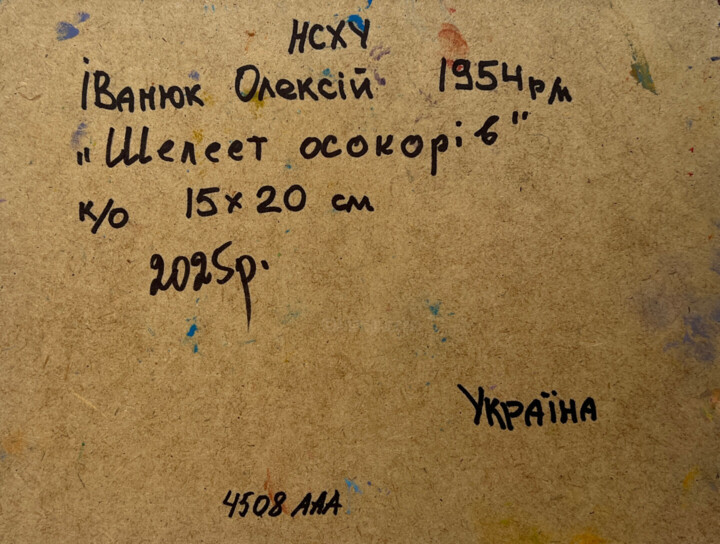 НСХУ
Іванюк Олексій 1954 р/м
„Шелест осокорів"
к/о 15х20 см
2025р.
Україна
4508 ААА